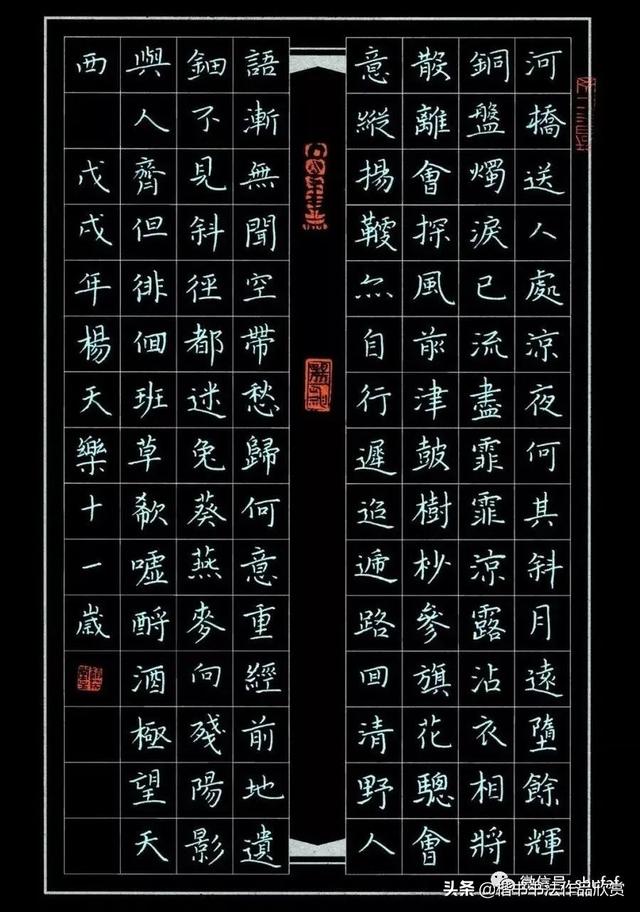 河橋送人處涼夜何其斜月遠墮餘輝
銅盤燭淚已流盡霏霏涼露沾衣相將
散離會探風前津鼓樹杪參旗花驄會
意縱揚鞭亦自行遲迢遞路回清野人
語漸無聞空帶愁歸何意重經前地遺
鈿不見斜徑都迷兔葵燕麥向殘陽影
與人齊但徘徊班草欷噓酹酒極望天
西 戊戌年楊天樂十一歲
微信号: shufaf
头条 @楷书书法作品欣赏